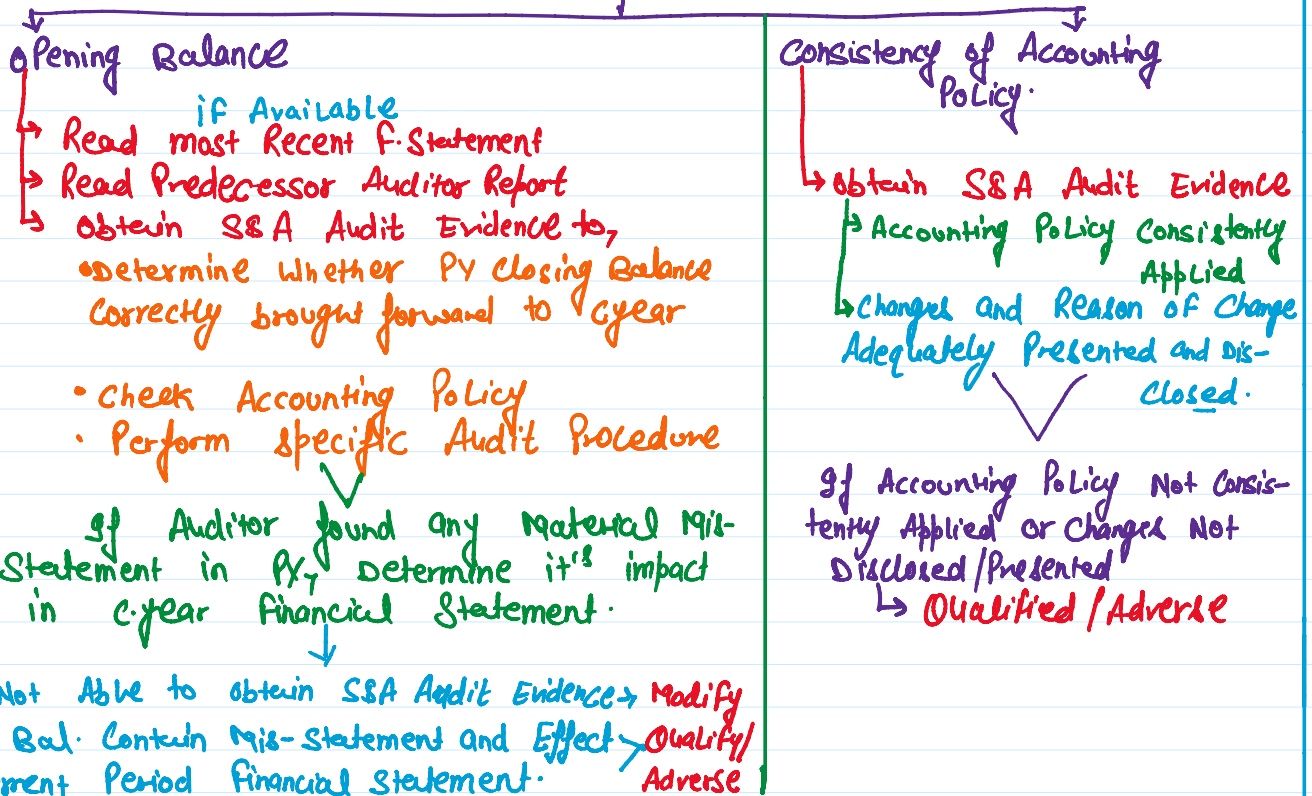 Opening Balance
if Available
Read most Recent F.Statement
Read Predecessor Auditor Report
Obtain S&A Audit Evidence to,
•Determine Whether PY Closing Balance
Correctly brought forward to cyear
• Check Accounting Policy
• Perform specific Audit Procedure
If Auditor found any Material Mis-
Statement in PY, Determine it's impact
in c.year Financial Statement.
Not Able to obtain S&A Audit Evidence → Modify
Bal. Contain Mis-Statement and Effect Qualify/
ment Period Financial Statement. Adverse
Consistency of Accounting
Policy.
Obtain S&A Audit Evidence
Accounting Policy Consistently
Applied
Changes and Reason of Change
Adequately Presented and Dis-
closed.
If Accounting Policy Not Consis-
tently Applied or Changes Not
Disclosed/Presented
Qualified/Adverse